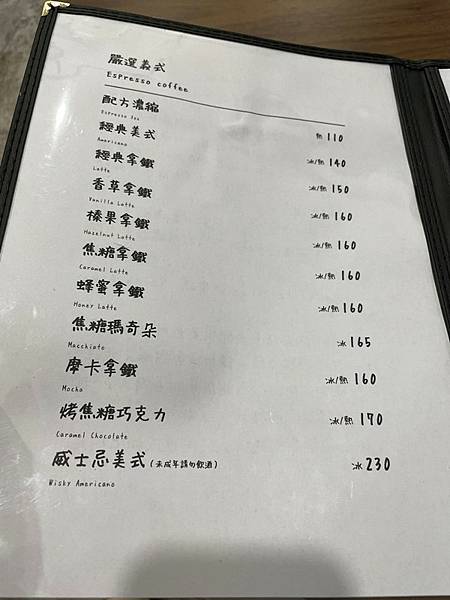 嚴選義式
Espresso coffee
配方濃縮 熱 110
Espresso Box
經典美式 冰/熱 140
Americano
經典拿鐵 冰/熱 150
Latte
香草拿鐵 冰/熱 160
Vanilla Latte
榛果拿鐵 冰/熱 160
Hazelnut Latte
焦糖拿鐵 冰/熱 160
Caramel Latte
蜂蜜拿鐵 冰/熱 160
Honey Latte
焦糖瑪奇朵 冰 165
Macchiato
摩卡拿鐵 冰/熱 160
Mocha
烤焦糖巧克力 冰/熱 170
Caramel Chocolate
威士忌美式(未成年請勿飲酒) 冰 230
Wisky Americano